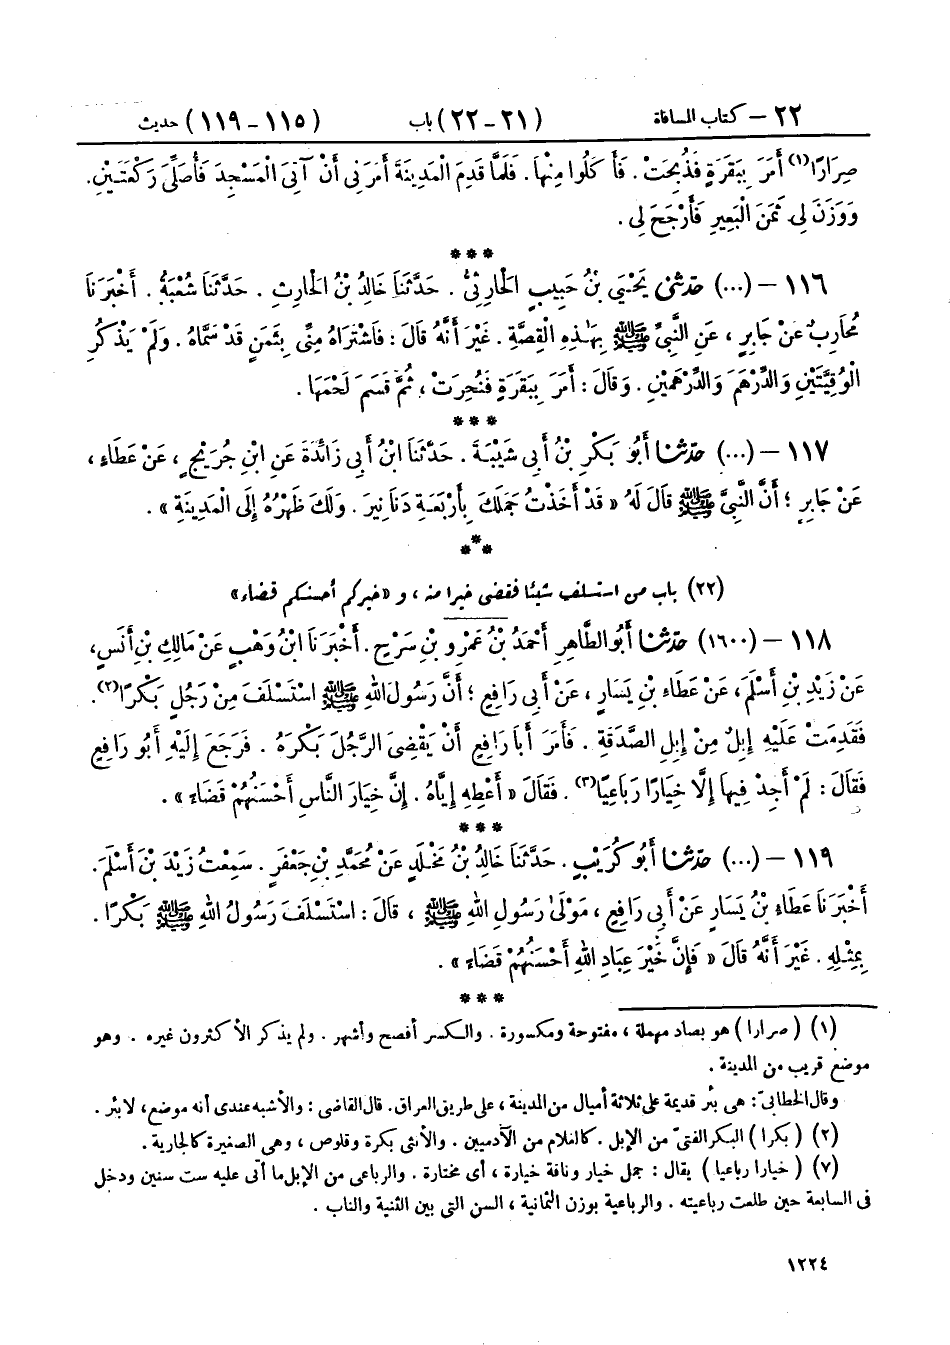 ٢٢ – كتاب المساقاة (٢١–٢٢) باب (١١٥–١١٩) حديث
صِرَارًا(١) أَمَرَ بِبَقَرَةٍ فَذُبِحَتْ . فَأَكَلُوا مِنْهَا . فَلَمَّا قَدِمَ الْمَدِينَةَ أَمَرَنِى أَنْ آتِىَ الْمَسْجِدَ فَأُصَلِّىَ رَكْعَتَيْنِ .
وَوَزَنَ لِى ثَمَنَ الْبَعِيرِ فَأَرْجَحَ لِى .
***
١١٦ – (...) حدّثنى يَحْيَى بْنُ حَبِيبٍ الْحَارِثِىُّ . حَدَّثَنَا خَالِدُ بْنُ الْحَارِثِ . حَدَّثَنَا شُعْبَةُ . أَخْبَرَنَا
مُحَارِبٌ عَنْ جَابِرٍ ، عَنِ النَّبِىِّ ﷺ بِهَٰذِهِ الْقِصَّةِ . غَيْرَ أَنَّهُ قَالَ : فَاشْتَرَاهُ مِنِّى بِثَمَنٍ قَدْ سَمَّاهُ . وَلَمْ يَذْكُرِ
الْوُقِيَّتَيْنِ وَالدِّرْهَمَ وَالدِّرْهَمَيْنِ . وَقَالَ : أَمَرَ بِبَقَرَةٍ فَنُحِرَتْ ، ثُمَّ قَسَمَ لَحْمَهَا .
***
١١٧ – (...) حدّثنا أَبُو بَكْرِ بْنُ أَبِى شَيْبَةَ . حَدَّثَنَا ابْنُ أَبِى زَائِدَةَ عَنِ ابْنِ جُرَيْجٍ ، عَنْ عَطَاءٍ ،
عَنْ جَابِرٍ ؛ أَنَّ النَّبِىَّ ﷺ قَالَ لَهُ « قَدْ أَخَذْتُ جَمَلَكَ بِأَرْبَعَةِ دَنَانِيرَ . وَلَكَ ظَهْرُهُ إِلَى الْمَدِينَةِ » .
***
(٢٢) باب من استسلف شيئا فقضى خيرا منه ، و «خيركم أحسنكم قضاء»
١١٨ – (١٦٠٠) حدّثنا أَبُو الطَّاهِرِ أَحْمَدُ بْنُ عَمْرِو بْنِ سَرْحٍ . أَخْبَرَنَا ابْنُ وَهْبٍ عَنْ مَالِكِ بْنِ أَنَسٍ ،
عَنْ زَيْدِ بْنِ أَسْلَمَ ، عَنْ عَطَاءِ بْنِ يَسَارٍ ، عَنْ أَبِى رَافِعٍ ؛ أَنَّ رَسُولَ اللهِ ﷺ اسْتَسْلَفَ مِنْ رَجُلٍ بَكْرًا(٢) .
فَقَدِمَتْ عَلَيْهِ إِبِلٌ مِنْ إِبِلِ الصَّدَقَةِ . فَأَمَرَ أَبَا رَافِعٍ أَنْ يَقْضِىَ الرَّجُلَ بَكْرَهُ . فَرَجَعَ إِلَيْهِ أَبُو رَافِعٍ
فَقَالَ : لَمْ أَجِدْ فِيهَا إِلَّا خِيَارًا رَبَاعِيًا(٣) . فَقَالَ « أَعْطِهِ إِيَّاهُ . إِنَّ خِيَارَ النَّاسِ أَحْسَنُهُمْ قَضَاءً » .
***
١١٩ – (...) حدّثنا أَبُو كُرَيْبٍ . حَدَّثَنَا خَالِدُ بْنُ مَخْلَدٍ عَنْ مُحَمَّدِ بْنِ جَعْفَرٍ . سَمِعْتُ زَيْدَ بْنَ أَسْلَمَ .
أَخْبَرَنَا عَطَاءُ بْنُ يَسَارٍ عَنْ أَبِى رَافِعٍ ، مَوْلَىٰ رَسُولِ اللهِ ﷺ ، قَالَ : اسْتَسْلَفَ رَسُولُ اللهِ ﷺ بَكْرًا .
بِمِثْلِهِ . غَيْرَ أَنَّهُ قَالَ « فَإِنَّ خَيْرَ عِبَادِ اللهِ أَحْسَنُهُمْ قَضَاءً » .
***
(١) (صرارا) هو بصاد مهملة ، مفتوحة ومكسورة . والكسر أفصح وأشهر . ولم يذكر الأكثرون غيره . وهو
موضع قريب من المدينة .
وقال الخطابىّ : هى بئر قديمة على ثلاثة أميال من المدينة ، على طريق العراق . قال القاضى : والأشبه عندى أنه موضع ، لا بئر .
(٢) (بكرا) البكر الفتىّ من الإبل . كالغلام من الآدميين . والأنثى بكرة وقلوص ، وهى الصغيرة كالجارية .
(٧) (خيارا رباعيا) يقال : جمل خيار وناقة خيارة ، أى مختارة . والرباعى من الإبل ما أتى عليه ست سنين ودخل
فى السابعة حين طلعت رباعيته . والرباعية بوزن الثمانية ، السن التى بين الثنية والناب .
١٢٢٤